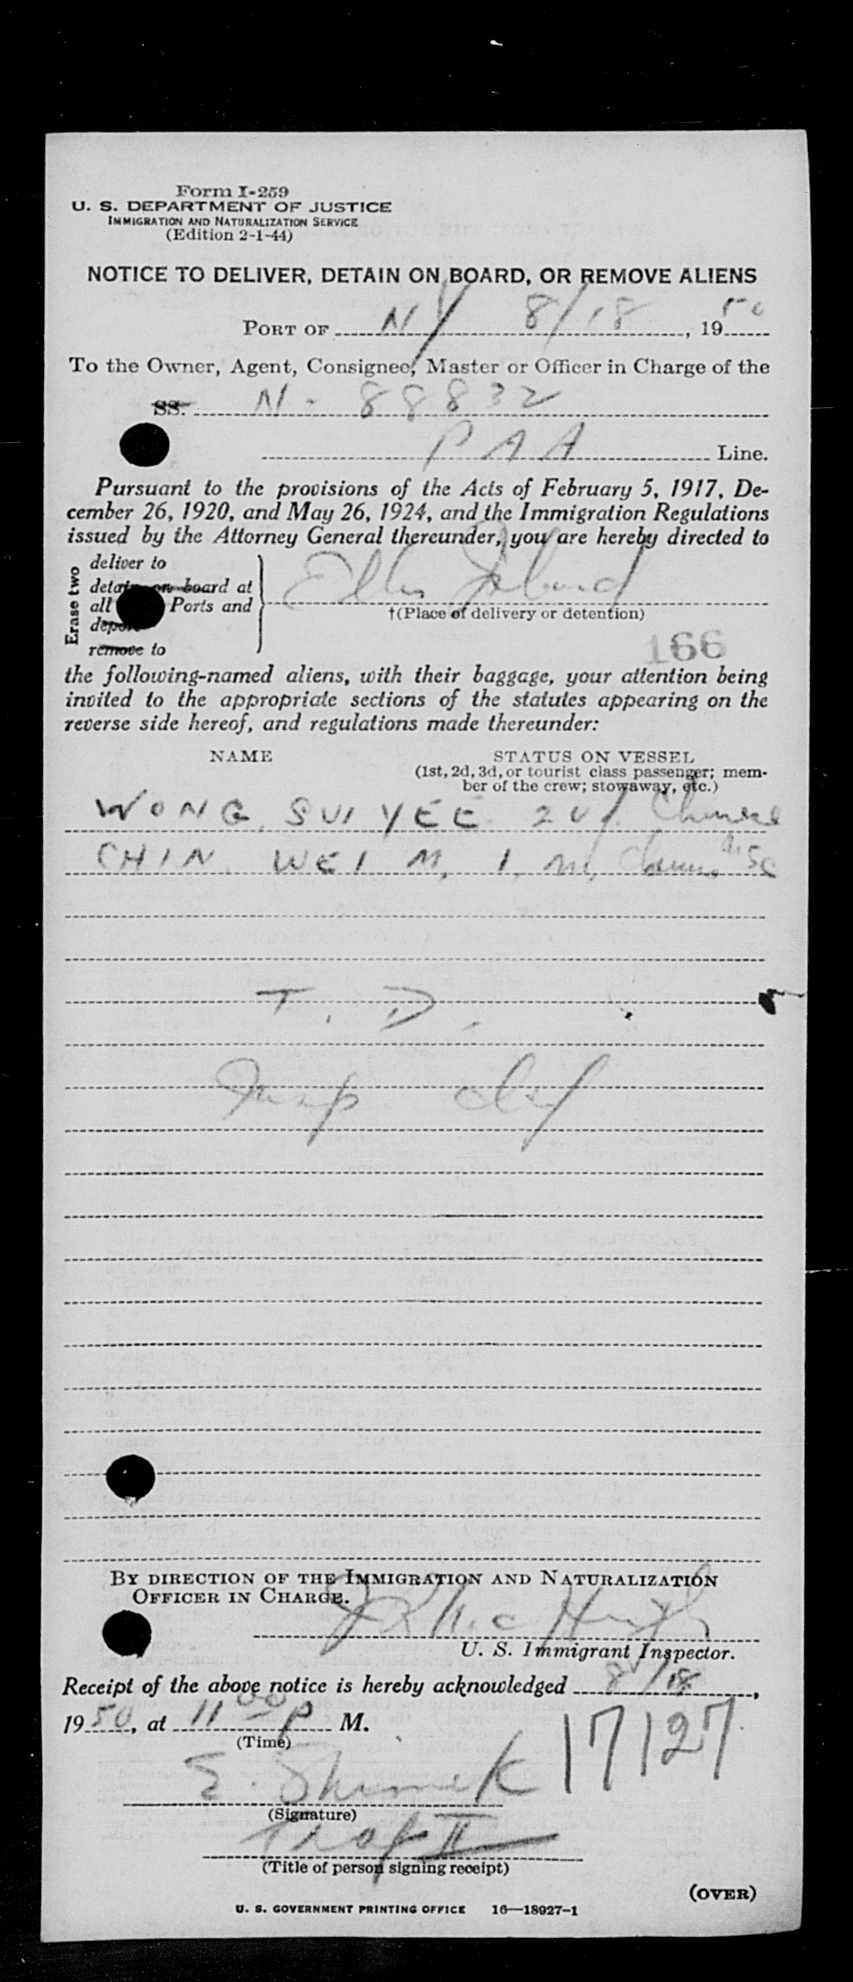 Form I-259
U. S. DEPARTMENT OF JUSTICE
IMMIGRATION AND NATURALIZATION SERVICE
(Edition 2-1-44)
NOTICE TO DELIVER, DETAIN ON BOARD, OR REMOVE ALIENS
PORT OF NY 8/18, 1950
To the Owner, Agent, Consignee, Master or Officer in Charge of the
SS. N-88832
PAA Line.
Pursuant to the provisions of the Acts of February 5, 1917, De-
cember 26, 1920, and May 26, 1924, and the Immigration Regulations
issued by the Attorney General thereunder, you are hereby directed to
Erase two
deliver to
detain on board at
all Ports and
depor
remove to
Ellis Island
†(Place of delivery or detention)
166
the following-named aliens, with their baggage, your attention being
invited to the appropriate sections of the statutes appearing on the
reverse side hereof, and regulations made thereunder:
NAME STATUS ON VESSEL
(1st, 2d, 3d, or tourist class passenger; mem-
ber of the crew; stowaway, etc.)
WONG, SUI YEE 20 f. Chinese
CHIN, WEI M, 1, m,
T. D.
Insp
BY DIRECTION OF THE IMMIGRATION AND NATURALIZATION
OFFICER IN CHARGE.
U. S. Immigrant Inspector.
Receipt of the above notice is hereby acknowledged 8/18,
1950, at 11 00 P M.
(Time)
17127
E. Shimek
(Signature)
(Title of person signing receipt)
(OVER)
U. S. GOVERNMENT PRINTING OFFICE 16—18927-1